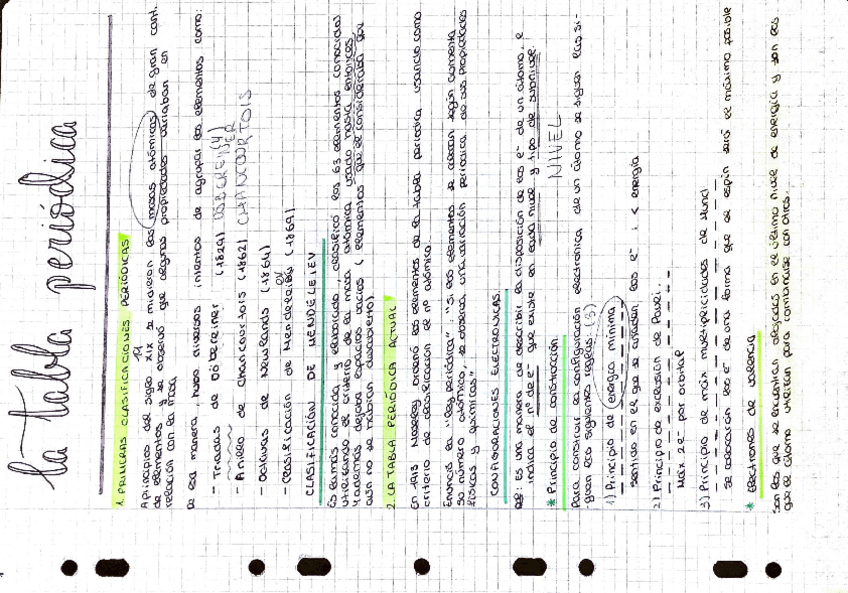 la tabla periódica
1. PRIMERAS CLASIFICACIONES PERIÓDICAS
A principios del siglo XIX se midieron las masas atómicas de gran cant.
de elementos y se observó que algunas propiedades variaban en
relación con la masa.
De esa manera, hubo diversos intentos de agrupar los elementos como:
- Triadas de Döbereiner (1829) DÖBEREINER
- Anillo de Chancourtois (1862) CHANCOURTOIS
- Octavas de Newlands (1864)
- Clasificación de Mendeleiev (1869)
CLASIFICACIÓN DE MENDELEIEV
Es la más conocida y elaborada, clasificó los 63 elementos conocidos
utilizando el criterio de la masa atómica usado hasta entonces
y además dejaba espacios vacíos ( elementos que él consideraba que
aún no se habían descubierto).
2. LA TABLA PERIÓDICA ACTUAL
En 1913 Moseley ordenó los elementos de la tabla periódica usando como
criterio de clasificación el nº atómico.
Enunció la "ley periódica" "si los elementos se colocan según aumenta
su número atómico, se observa una variación periódica de sus propiedades
físicas y químicas".
CONFIGURACIONES ELECTRÓNICAS
: Es una manera de describir la disposición de los e⁻ de un átomo, e
indica el nº de e⁻ que existe en cada nivel y tipo de subnivel.
NIVEL
* Principio de construcción
Para construir la configuración electrónica de un átomo se siguen las si-
guientes reglas (3)
1) Principio de energía mínima
sentido en el que se añaden los e⁻ : < energía
2) Principio de exclusión de Pauli.
Máx 2e⁻ por orbital
3) Principio de máx multiplicidades de Hund
Se colocarán los e⁻ de una forma que el espín será el máximo posible
* Electrones de valencia
Son los que se encuentran alojados en el último nivel de energía y son los
que el átomo utilizan para combinarse con otros.